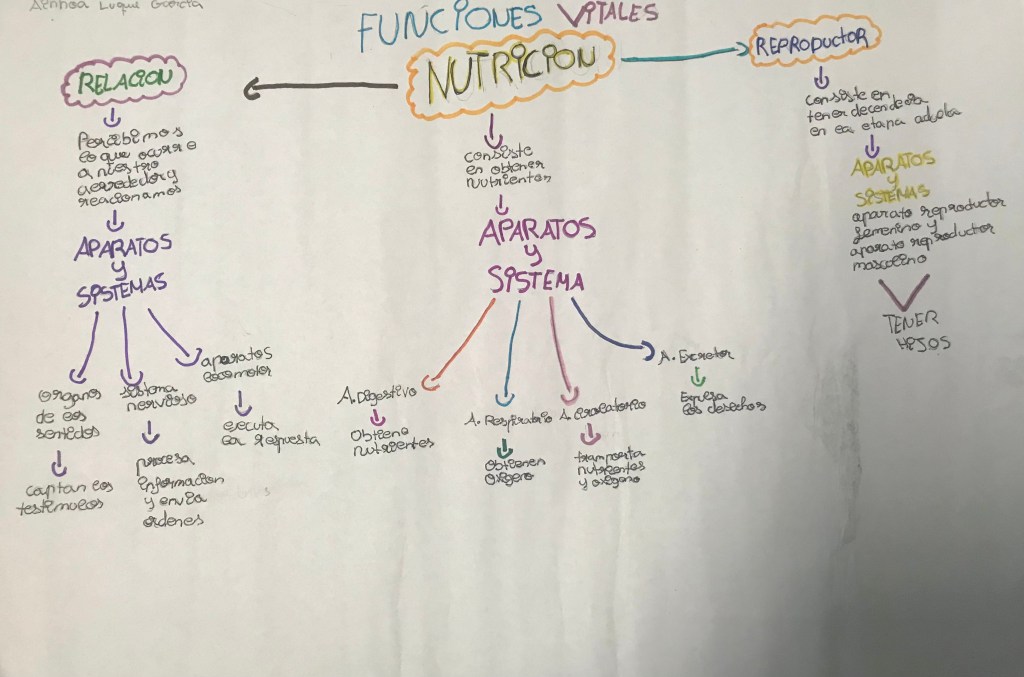 Ainhoa Luque García
FUNCIONES VITALES
RELACION
Percibimos
lo que ocurre
a nuestro
alrededor y
reacionamos
APARATOS
y
SISTEMAS
organos
de los
sentidos
captan los
testimulos
sistema
nervioso
procesa
informacion
y envia
ordenes
aparatos
locomotor
ejecuta
la respuesta
NUTRICION
consiste
en obtener
nutrientes
APARATOS
y
SISTEMA
A. Digestivo
Obtiene
nutrientes
A. Respiratorio
Obtienen
oxigeno
A. Circulatorio
transporta
nutrientes
y oxigeno
A. Excretor
Expulsa
los desechos
REPRODUCTOR
consiste en
tener decendecia
en la etapa adulta
APARATOS
y
SISTEMAS
aparato reproductor
femenino y
aparato reproductor
masculino
TENER
HIJOS